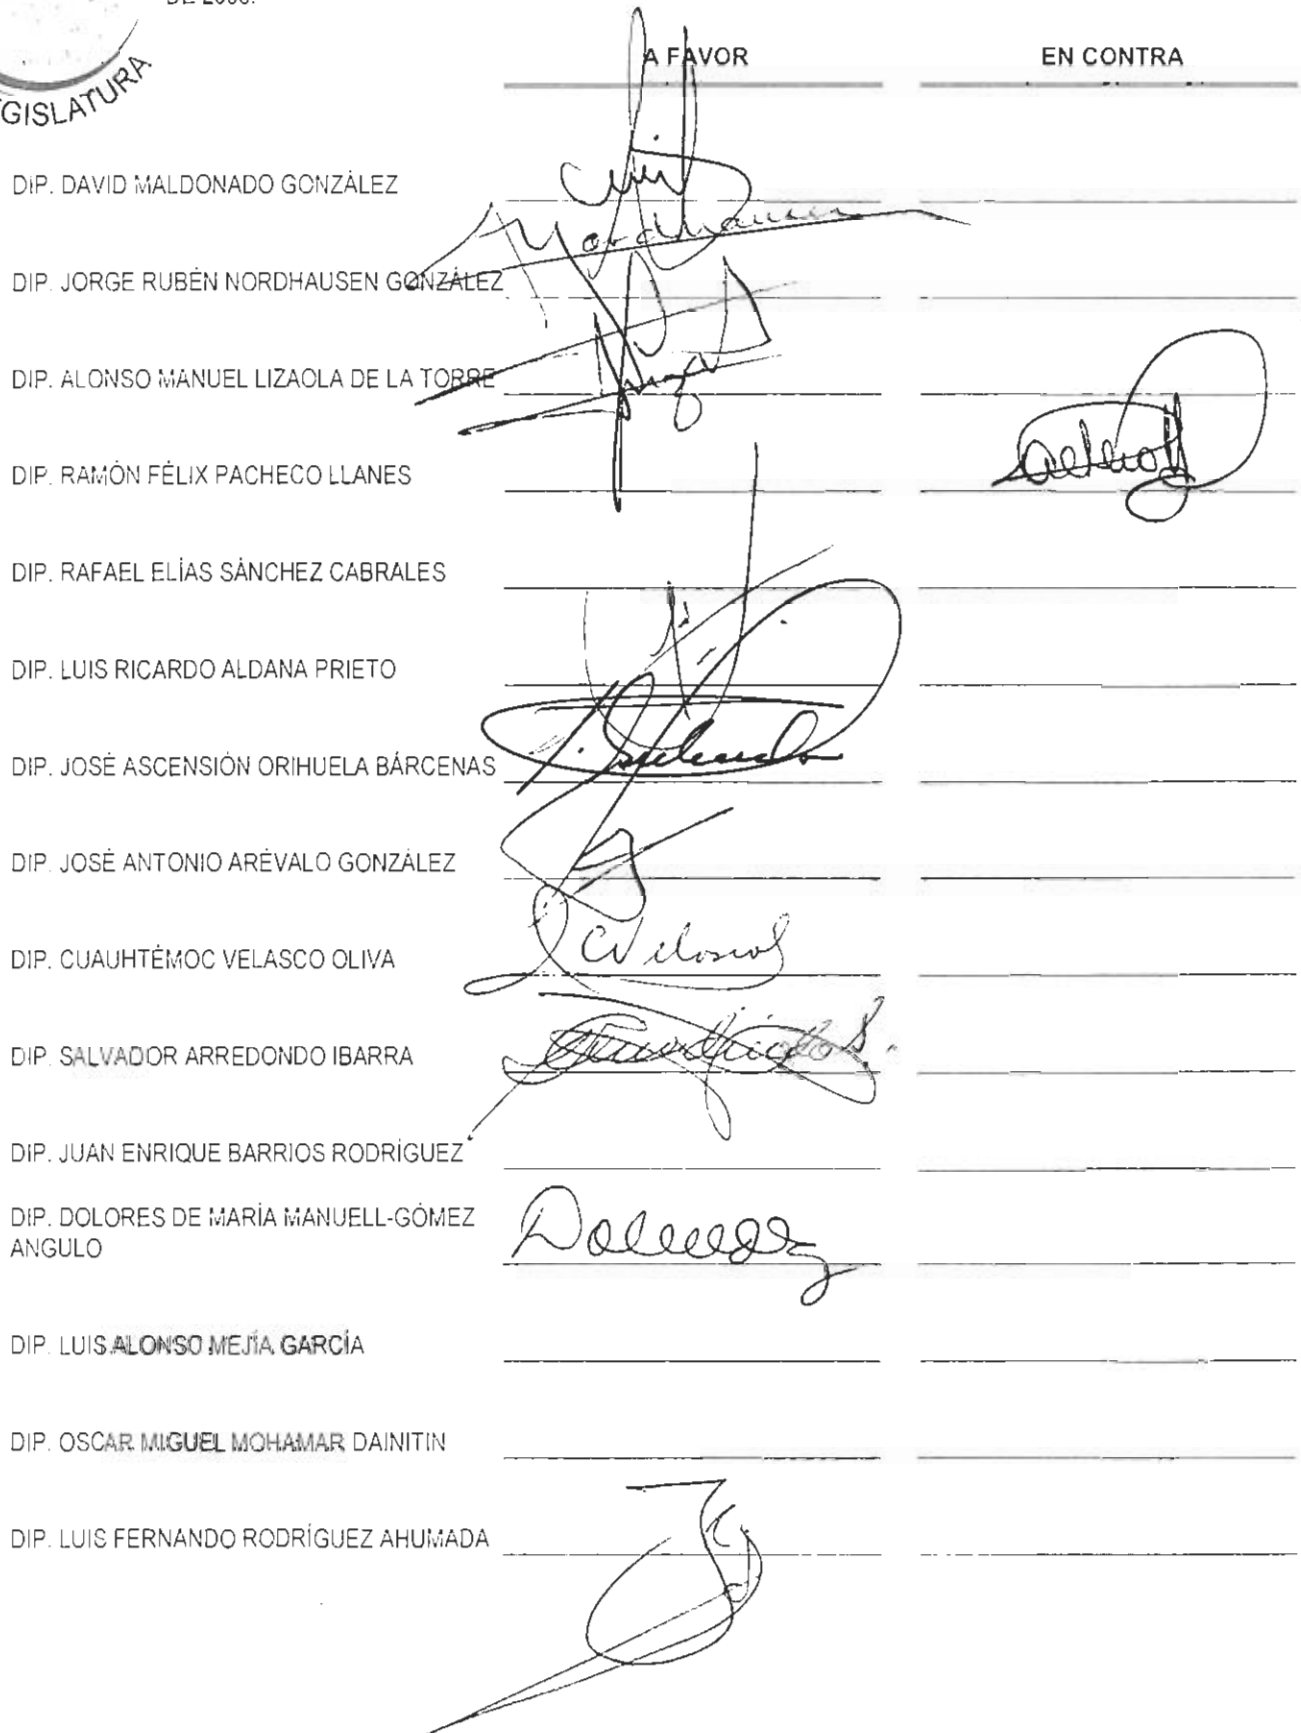 DE 2006.
GISLATURA
A FAVOR EN CONTRA
DIP. DAVID MALDONADO GONZÁLEZ
Nordhausen
DIP. JORGE RUBÉN NORDHAUSEN GONZÁLEZ
DIP. ALONSO MANUEL LIZAOLA DE LA TORRE
DIP. RAMÓN FÉLIX PACHECO LLANES
DIP. RAFAEL ELÍAS SÁNCHEZ CABRALES
DIP. LUIS RICARDO ALDANA PRIETO
DIP. JOSÉ ASCENSIÓN ORIHUELA BÁRCENAS
DIP. JOSÉ ANTONIO ARÉVALO GONZÁLEZ
DIP. CUAUHTÉMOC VELASCO OLIVA
DIP. SALVADOR ARREDONDO IBARRA
DIP. JUAN ENRIQUE BARRIOS RODRÍGUEZ
DIP. DOLORES DE MARÍA MANUELL-GÓMEZ
ANGULO
DIP. LUIS ALONSO MEJÍA GARCÍA
DIP. OSCAR MIGUEL MOHAMAR DAINITIN
DIP. LUIS FERNANDO RODRÍGUEZ AHUMADA